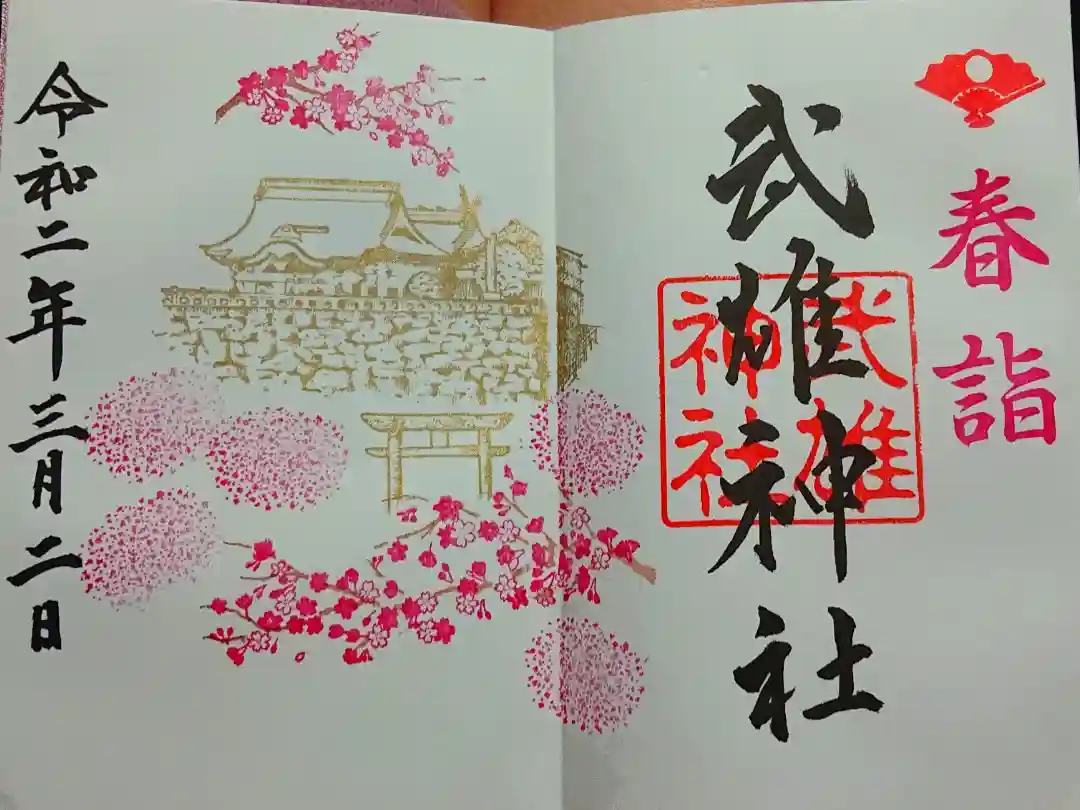 春詣
武雄神社
武雄
神社
令和二年三月二日